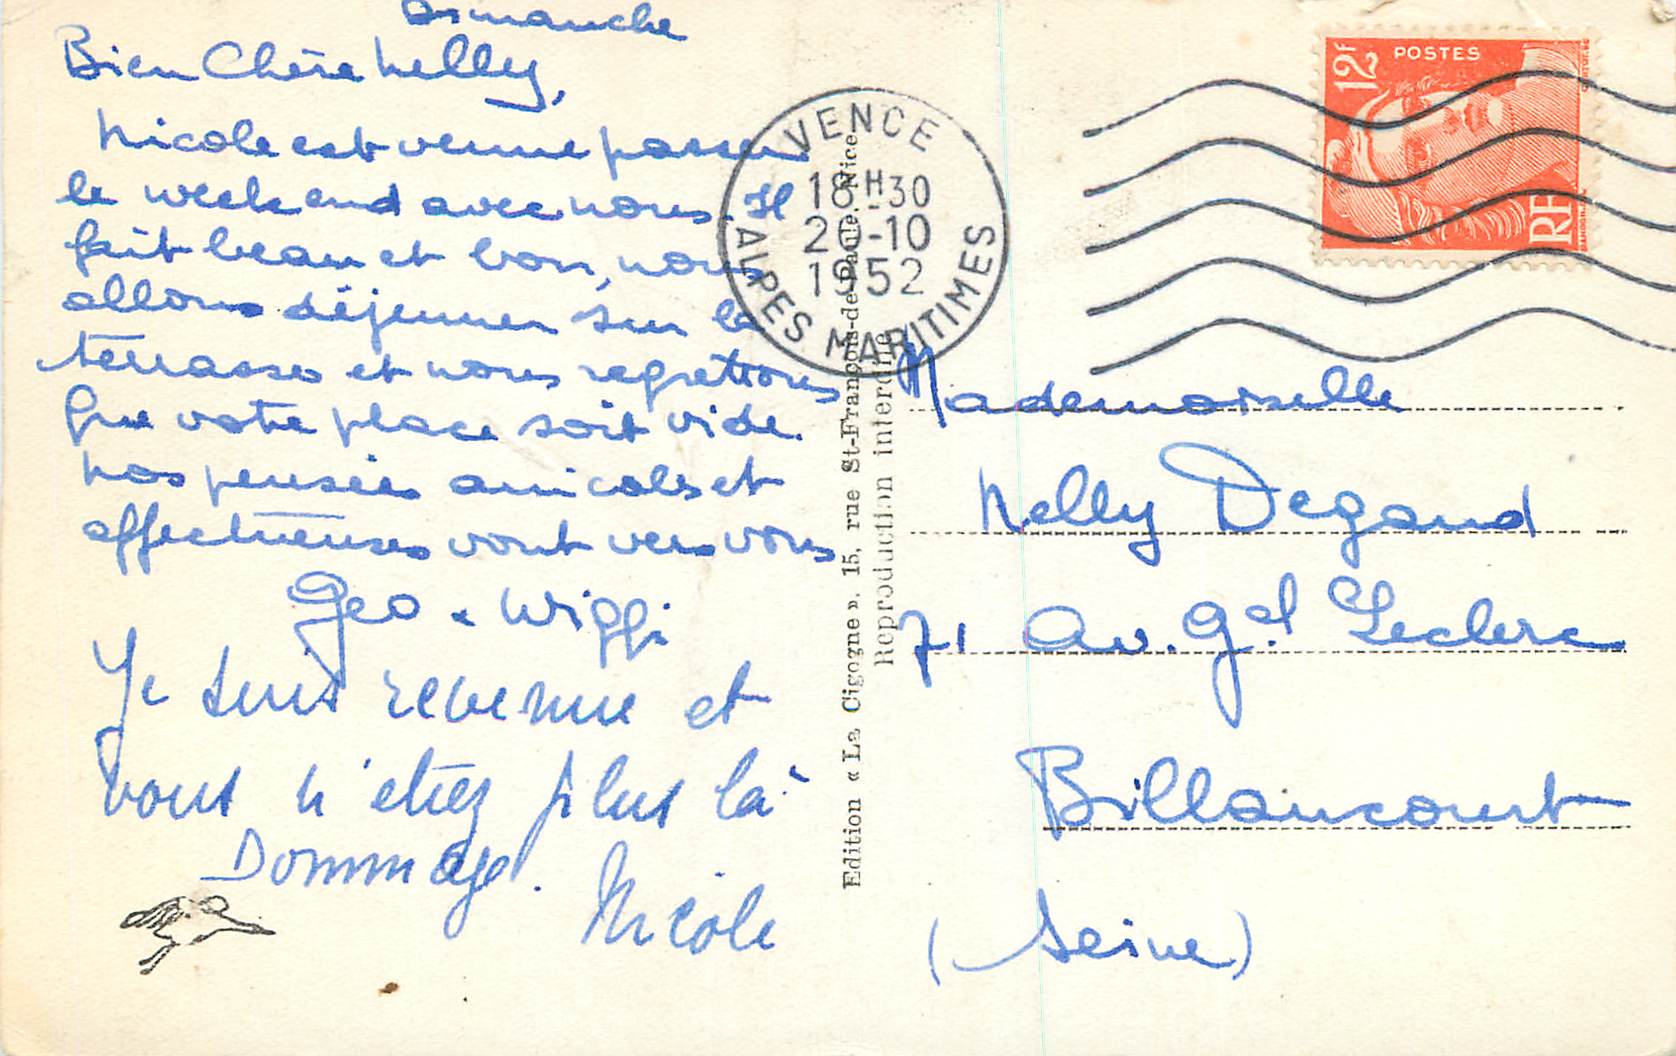 Dimanche
Bien Chère Nelly,
Nicole est venue passer
le week end avec nous. Il
fait beau et bon, nous
allons déjeuner sur la
terrasse et nous regrettons
que votre place soit vide.
Nos pensées amicales et
affectueuses vont vers vous
Geo & Wiggi
Je suis revenue et
vous n'étiez plus là
Dommage.
Nicole
Edition « La Cigogne ». 15, rue St-François-de-Paule. Nice
Reproduction interdite
VENCE
18H30
20-10
1952
ALPES MARITIMES
12F
POSTES
RF
Mademoiselle
Nelly Degand
71 Av. Gal Leclerc
Billancourt
(Seine)